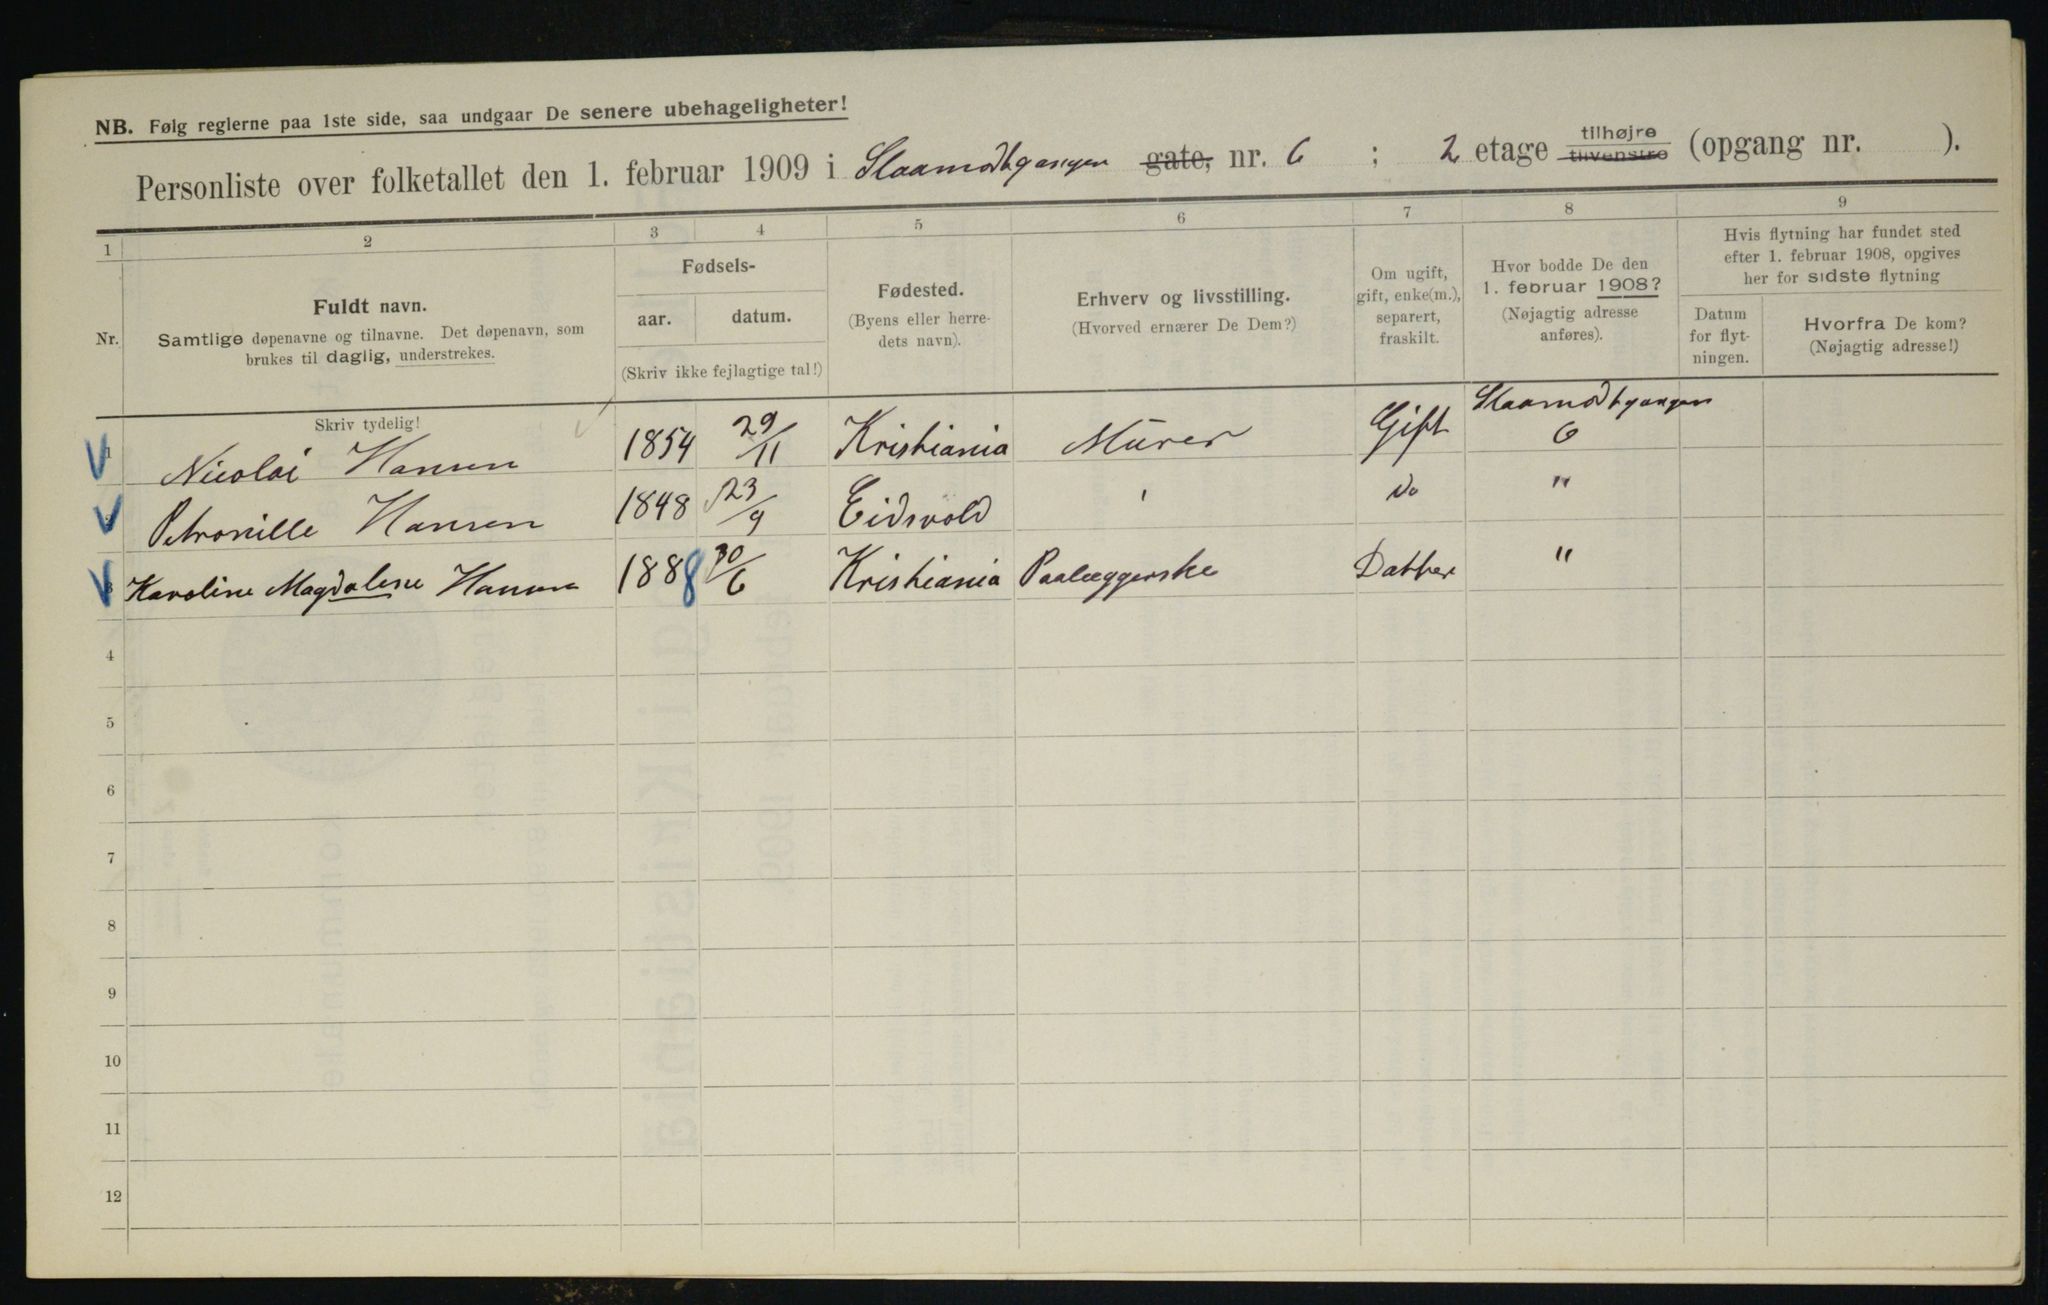 NB. Følg reglerne paa 1ste side, saa undgaar De senere ubehageligheter!
Personliste over folketallet den 1. februar 1909 i Slaamodtgangen gate, nr. 6 ; 2 etage tilhøjre tilvenstre (opgang nr. ).
1 2 3 4 5 6 7 8 9
Nr.
Fuldt navn.
Samtlige døpenavne og tilnavne. Det døpenavn, som
brukes til daglig, understrekes.
Fødsels-
aar. datum.
(Skriv ikke fejlagtige tal!)
Fødested.
(Byens eller herre-
dets navn).
Erhverv og livsstilling.
(Hvorved ernærer De Dem?)
Om ugift,
gift, enke(m.),
separert,
fraskilt.
Hvor bodde De den
1. februar 1908?
(Nøjagtig adresse
anføres).
Hvis flytning har fundet sted
efter 1. februar 1908, opgives
her for sidste flytning
Datum
for flyt-
ningen.
Hvorfra De kom?
(Nøjagtig adresse!)
Skriv tydelig!
1 Nicolai Hansen 1854 29/11 Kristiania Mürer Gift Slaamodtgangen 6
2 Petronille Hansen 1848 23/9 Eidsvold do "
3 Karoline Magdalene Hansen 1888 30/6 Kristiania Paalæggerske Datter "
4
5
6
7
8
9
10
11
12